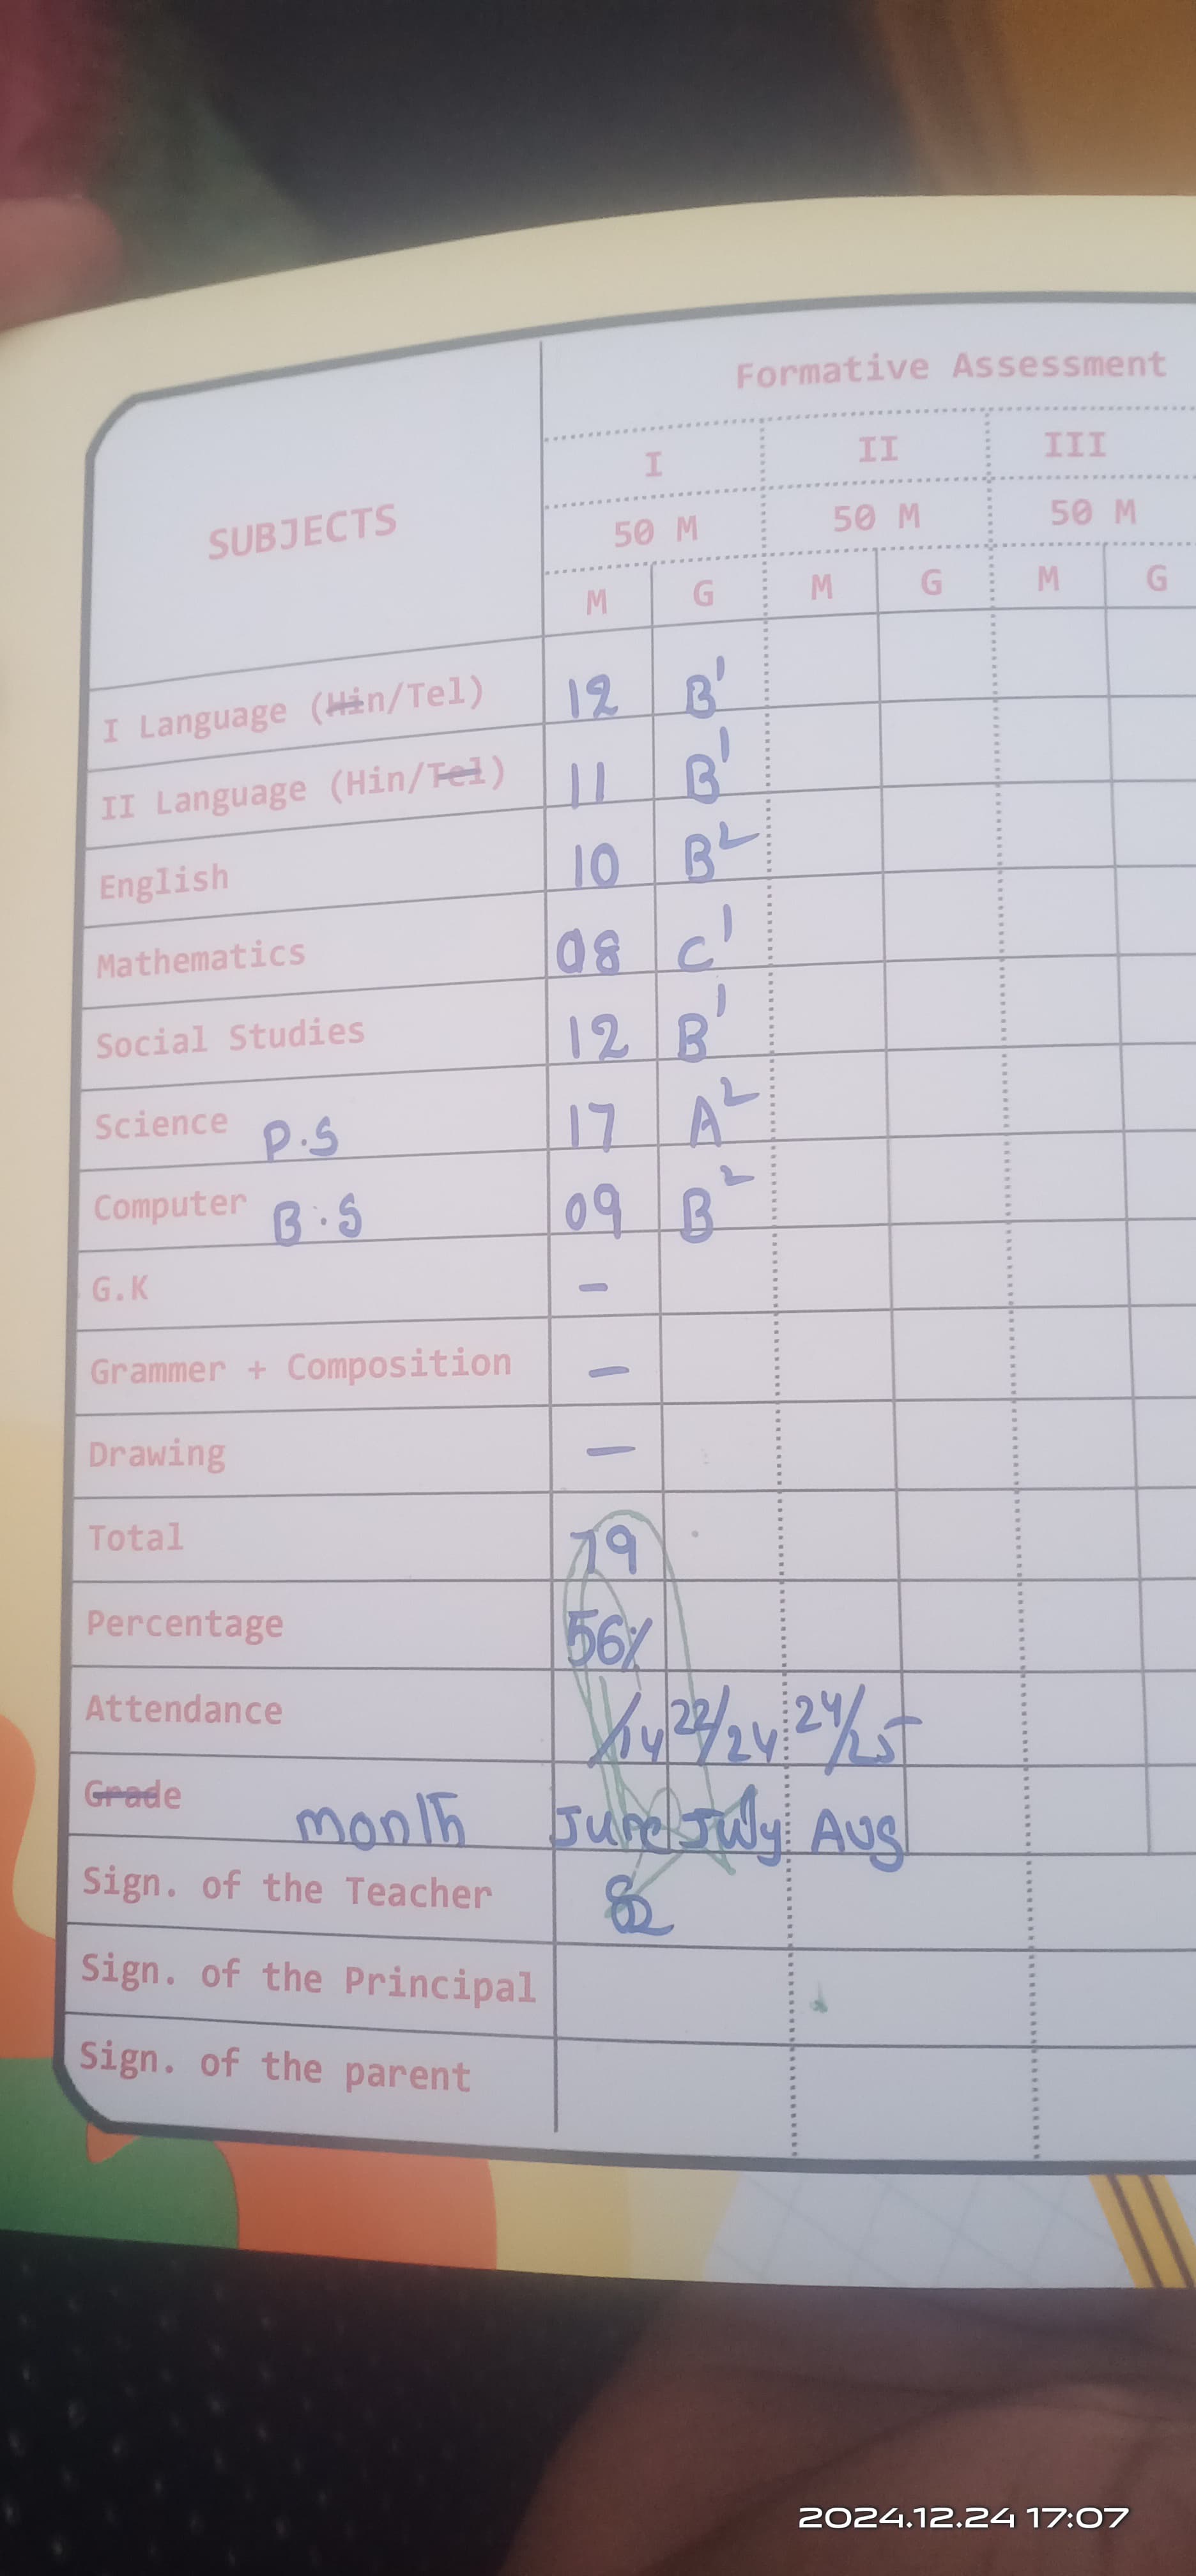 Formative Assessment
I II III
SUBJECTS 50 M 50 M 50 M
M G M G M G
I Language (Hin/Tel) 12 B1
II Language (Hin/Tel) 11 B1
English 10 B2
Mathematics 08 C1
Social Studies 12 B1
Science P.S 17 A2
Computer B.S 09 B2
G.K -
Grammer + Composition -
Drawing -
Total 79
Percentage 56%
Attendance /14 22/24 24/25
Grade month June July Aug
Sign. of the Teacher
Sign. of the Principal
Sign. of the parent
2024.12.24 17:07